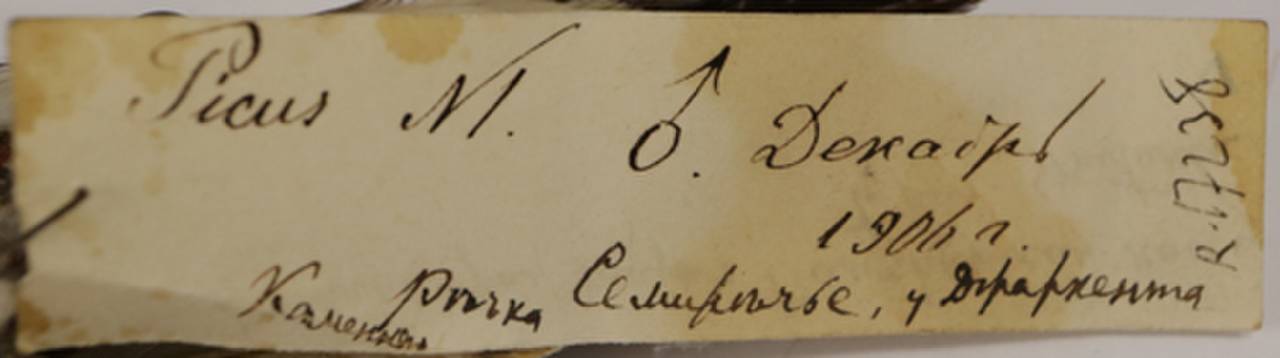 Picus M. ♂. Декабрь
1906 г.
Каменная Рѣчка Семирѣчье, у Джаркента
R-17238